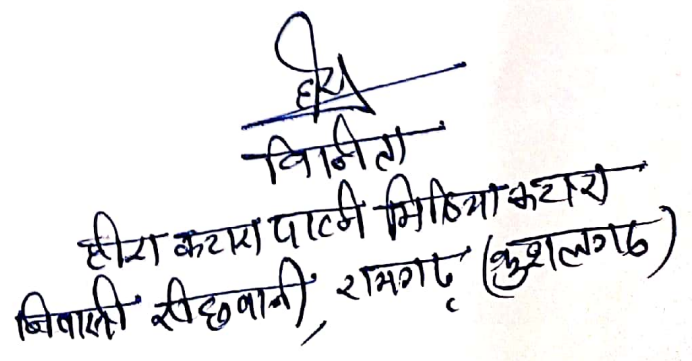 हीरा
विनीता
हीरा कटारा पत्नी मिठिया कटारा
निवासी रीछवानी, रामगढ़ (कुशलगढ)